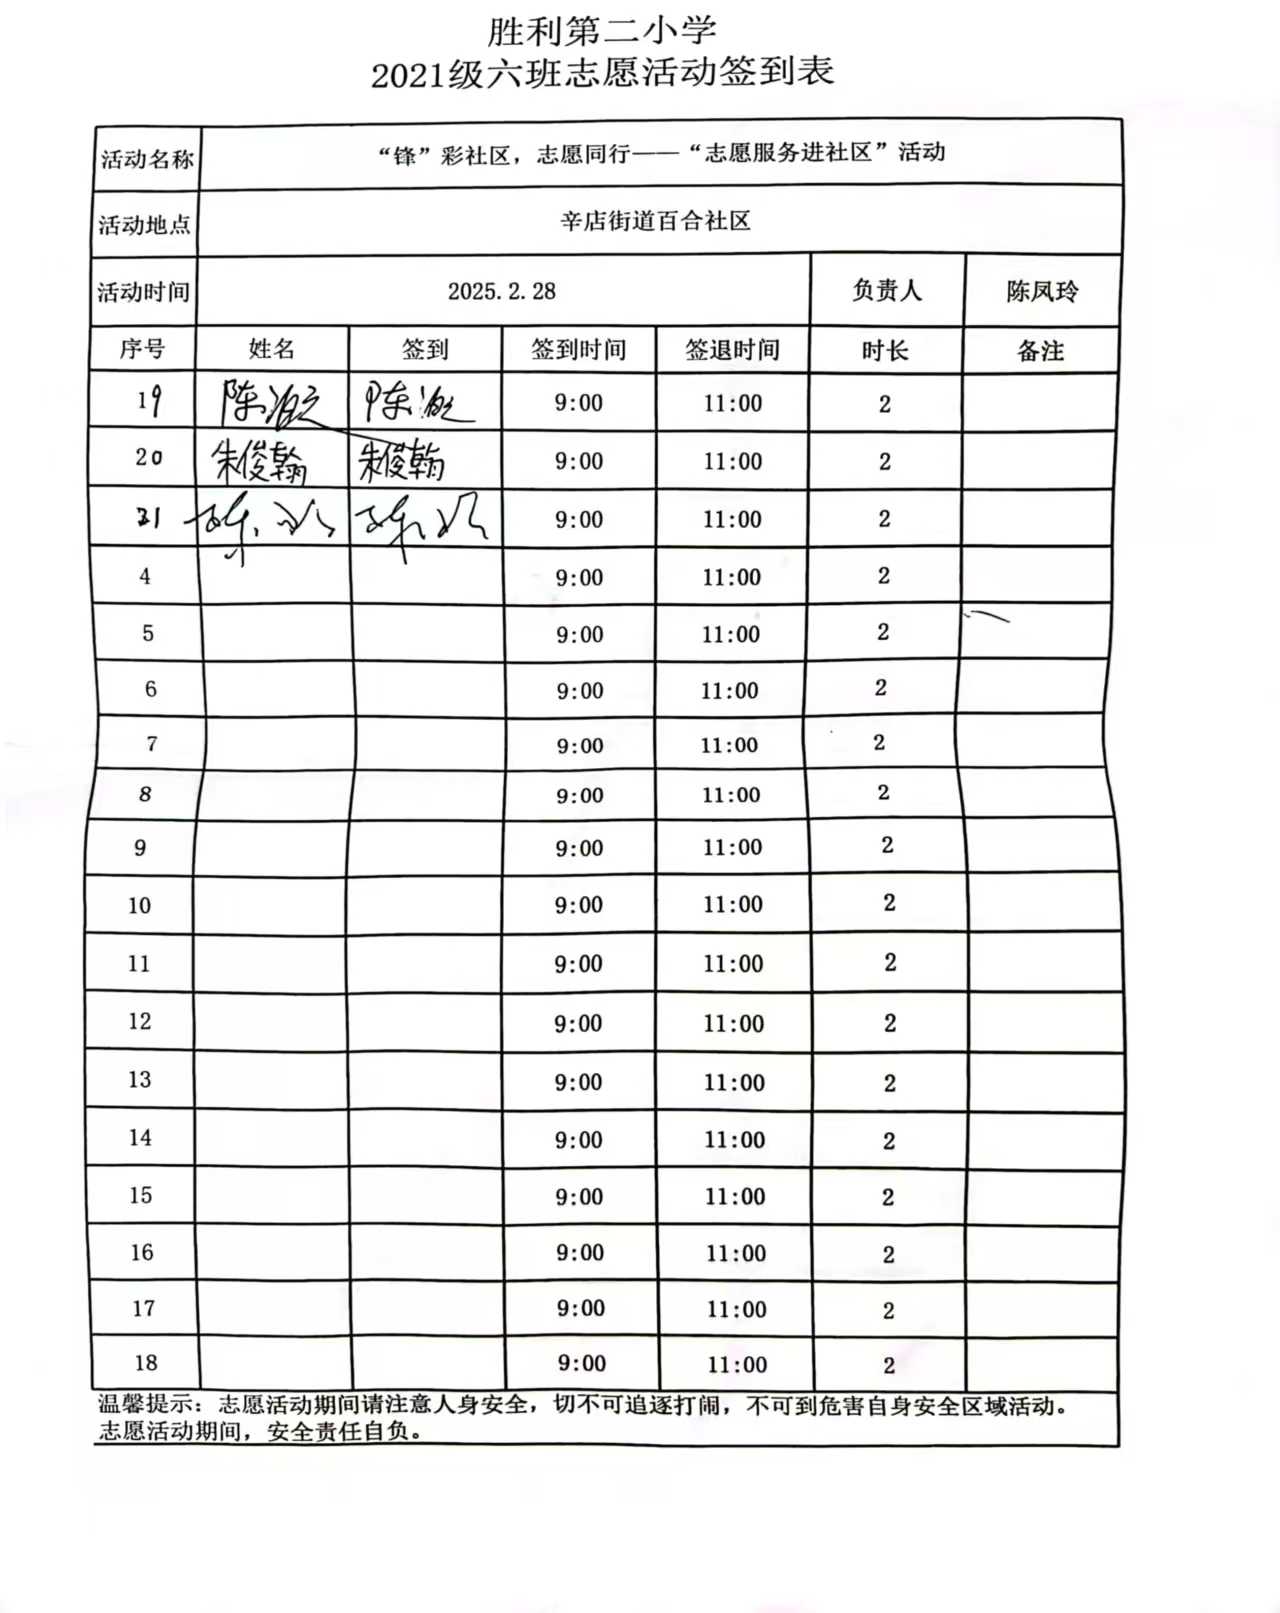 胜利第二小学
2021级六班志愿活动签到表
活动名称 “锋”彩社区，志愿同行——“志愿服务进社区”活动
活动地点 辛店街道百合社区
活动时间 2025.2.28 负责人 陈凤玲
序号 姓名 签到 签到时间 签退时间 时长 备注
19 陈 陈 9:00 11:00 2
20 朱俊翰 朱俊翰 9:00 11:00 2
21 陈 陈 9:00 11:00 2
4 9:00 11:00 2
5 9:00 11:00 2
6 9:00 11:00 2
7 9:00 11:00 2
8 9:00 11:00 2
9 9:00 11:00 2
10 9:00 11:00 2
11 9:00 11:00 2
12 9:00 11:00 2
13 9:00 11:00 2
14 9:00 11:00 2
15 9:00 11:00 2
16 9:00 11:00 2
17 9:00 11:00 2
18 9:00 11:00 2
温馨提示：志愿活动期间请注意人身安全，切不可追逐打闹，不可到危害自身安全区域活动。
志愿活动期间，安全责任自负。